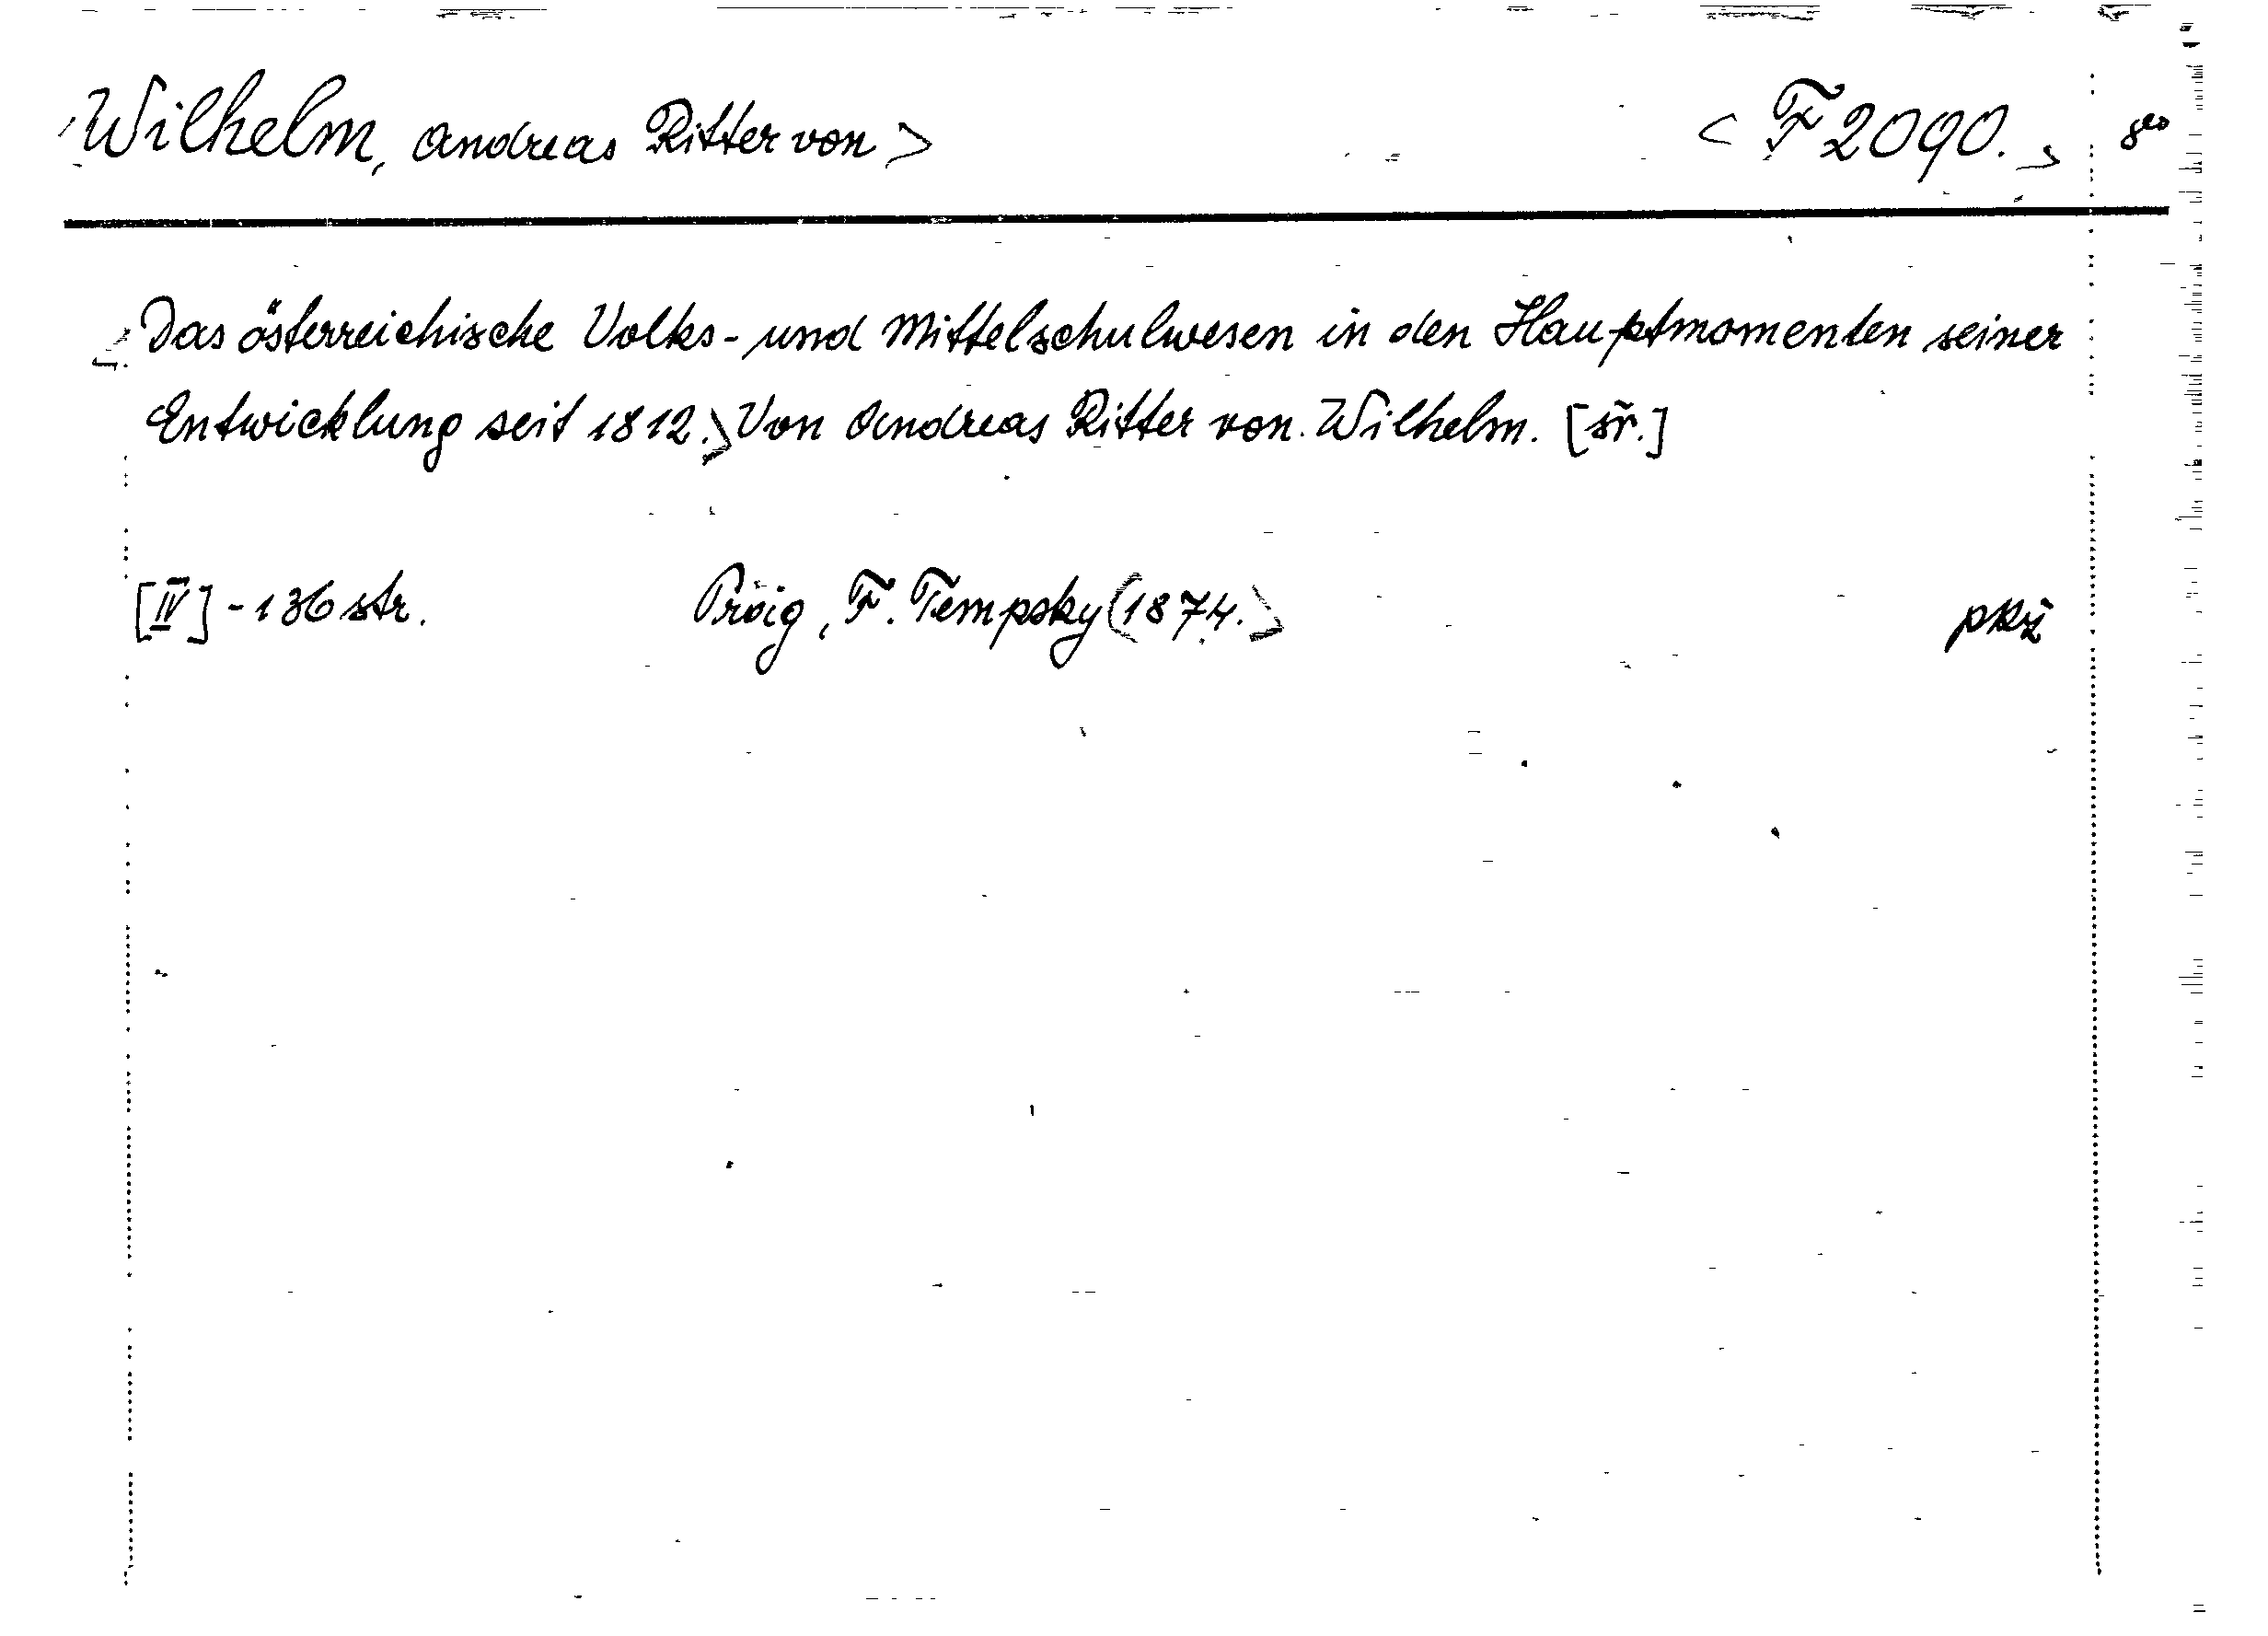 Wilhelm, Andreas Ritter von> <F 2090.> 8°
<Das österreichische Volks- und Mittelschulwesen in den Hauptmomenten seiner
Entwicklung seit 1812.> Von Andreas Ritter von Wilhelm. [šř.]
[IV] - 136 str. Prag, F. Tempsky (1874.> pkž